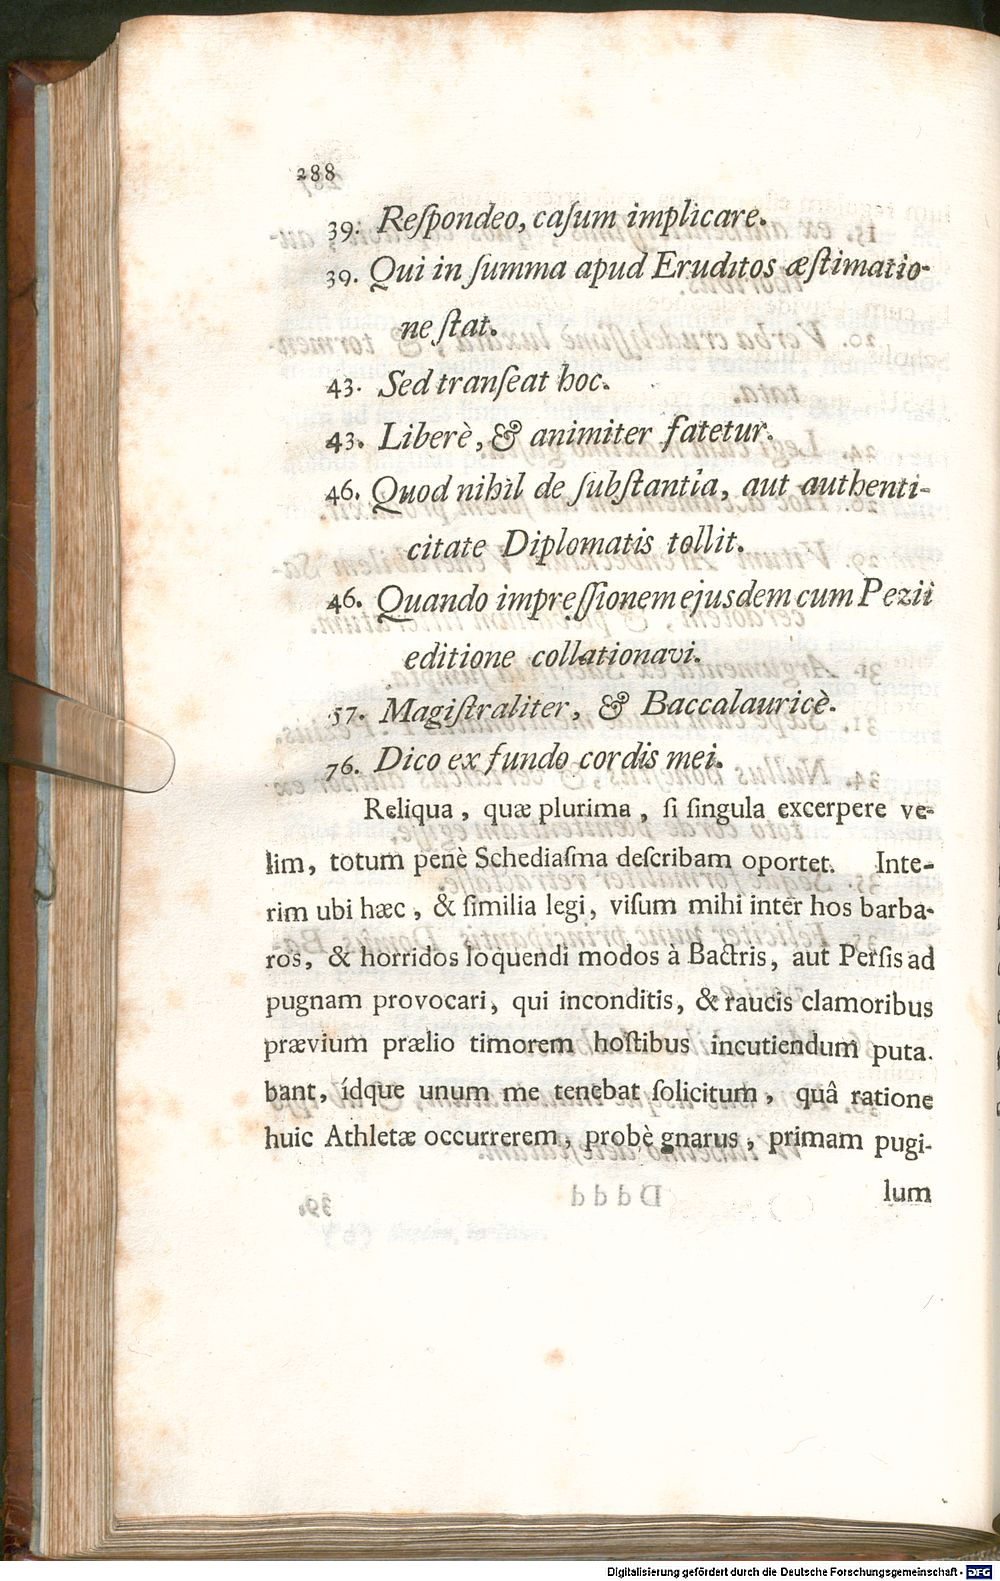 288
39. Reſpondeo, caſum implicare.
39. Qui in ſumma apud Eruditos æſtimatio-
ne ſtat.
43. Sed tranſeat hoc.
43. Liberè, & animiter fatetur.
46. Quod nihil de ſubſtantia, aut authenti-
citate Diplomatis tollit.
46. Quando impreſſionem ejusdem cum Pezii
editione collationavi.
57. Magiſtraliter, & Baccalauricè.
76. Dico ex fundo cordis mei.
Reliqua, quæ plurima, ſi ſingula excerpere ve-
lim, totum penè Schediaſma deſcribam oportet. Inte-
rim ubi hæc, & ſimilia legi, viſum mihi inter hos barba-
ros, & horridos loquendi modos à Bactris, aut Perſis ad
pugnam provocari, qui inconditis, & raucis clamoribus
prævium prælio timorem hoſtibus incutiendum puta.
bant, ídque unum me tenebat ſolicitum, quâ ratione
huic Athletæ occurrerem, probè gnarus, primam pugi-
lum
Digitalisierung gefördert durch die Deutsche Forschungsgemeinschaft - DFG